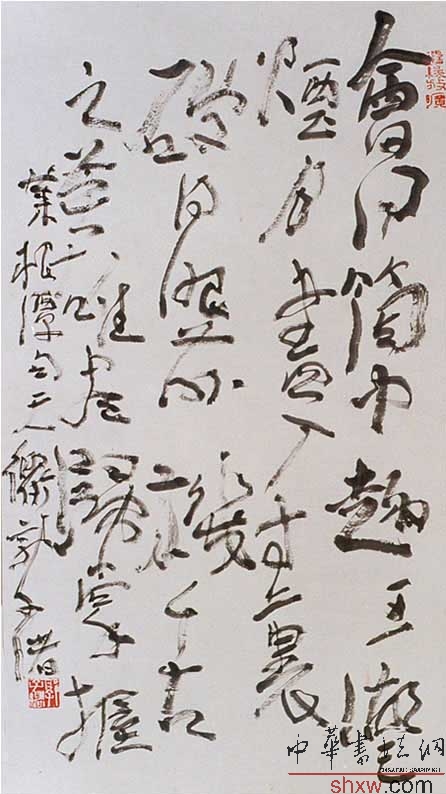 會得箇中趣五湖之
煙月盡入寸裏
破得眼前機千古
之英雄盡歸掌握
菜根譚句
中華書法網
shxw.com